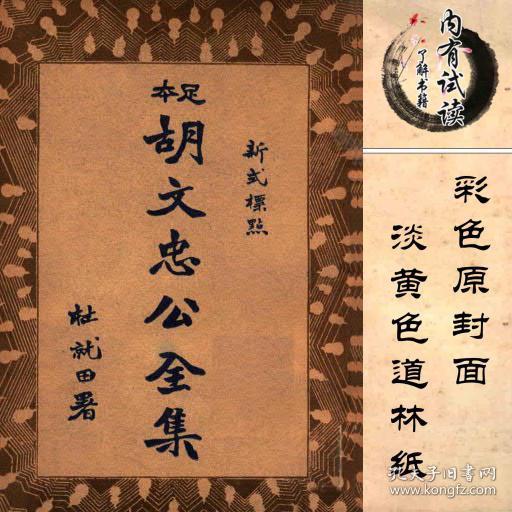 新式標點
足本
胡文忠公全集
杜就田署
内有试读
了解书籍
彩色原封面
淡黄色道林紙
孔夫子旧书网
www.kongfz.com